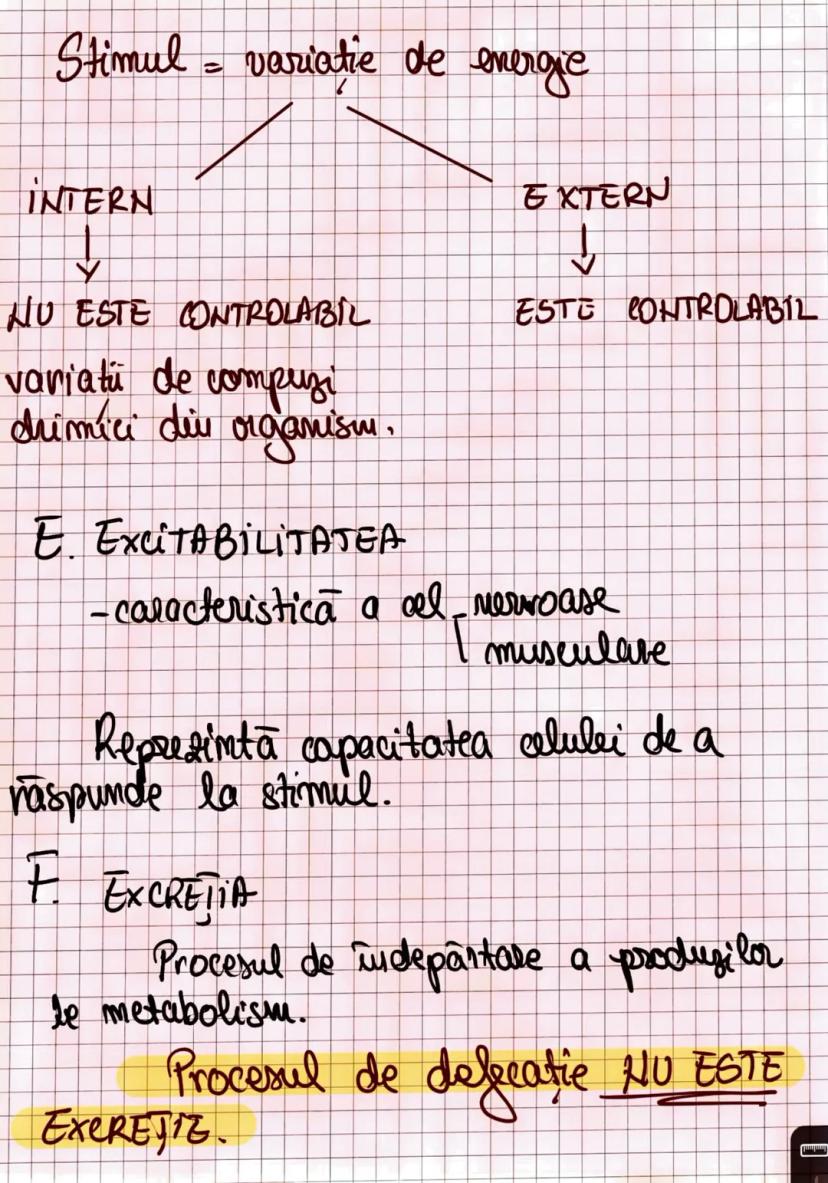 Stimul = variație de energie
INTERN EXTERN
NU ESTE CONTROLABIL ESTE CONTROLABIL
variații de compuzi
chimici din organism.
E. EXCITABILITATEA
- caracteristică a cel nervoase
musculare
Reprezintă capacitatea celulei de a
răspunde la stimul.
F. EXCREȚIA
Procesul de îndepărtare a produzilor
de metabolism.
Procesul de defecație NU ESTE
EXCREȚIE.